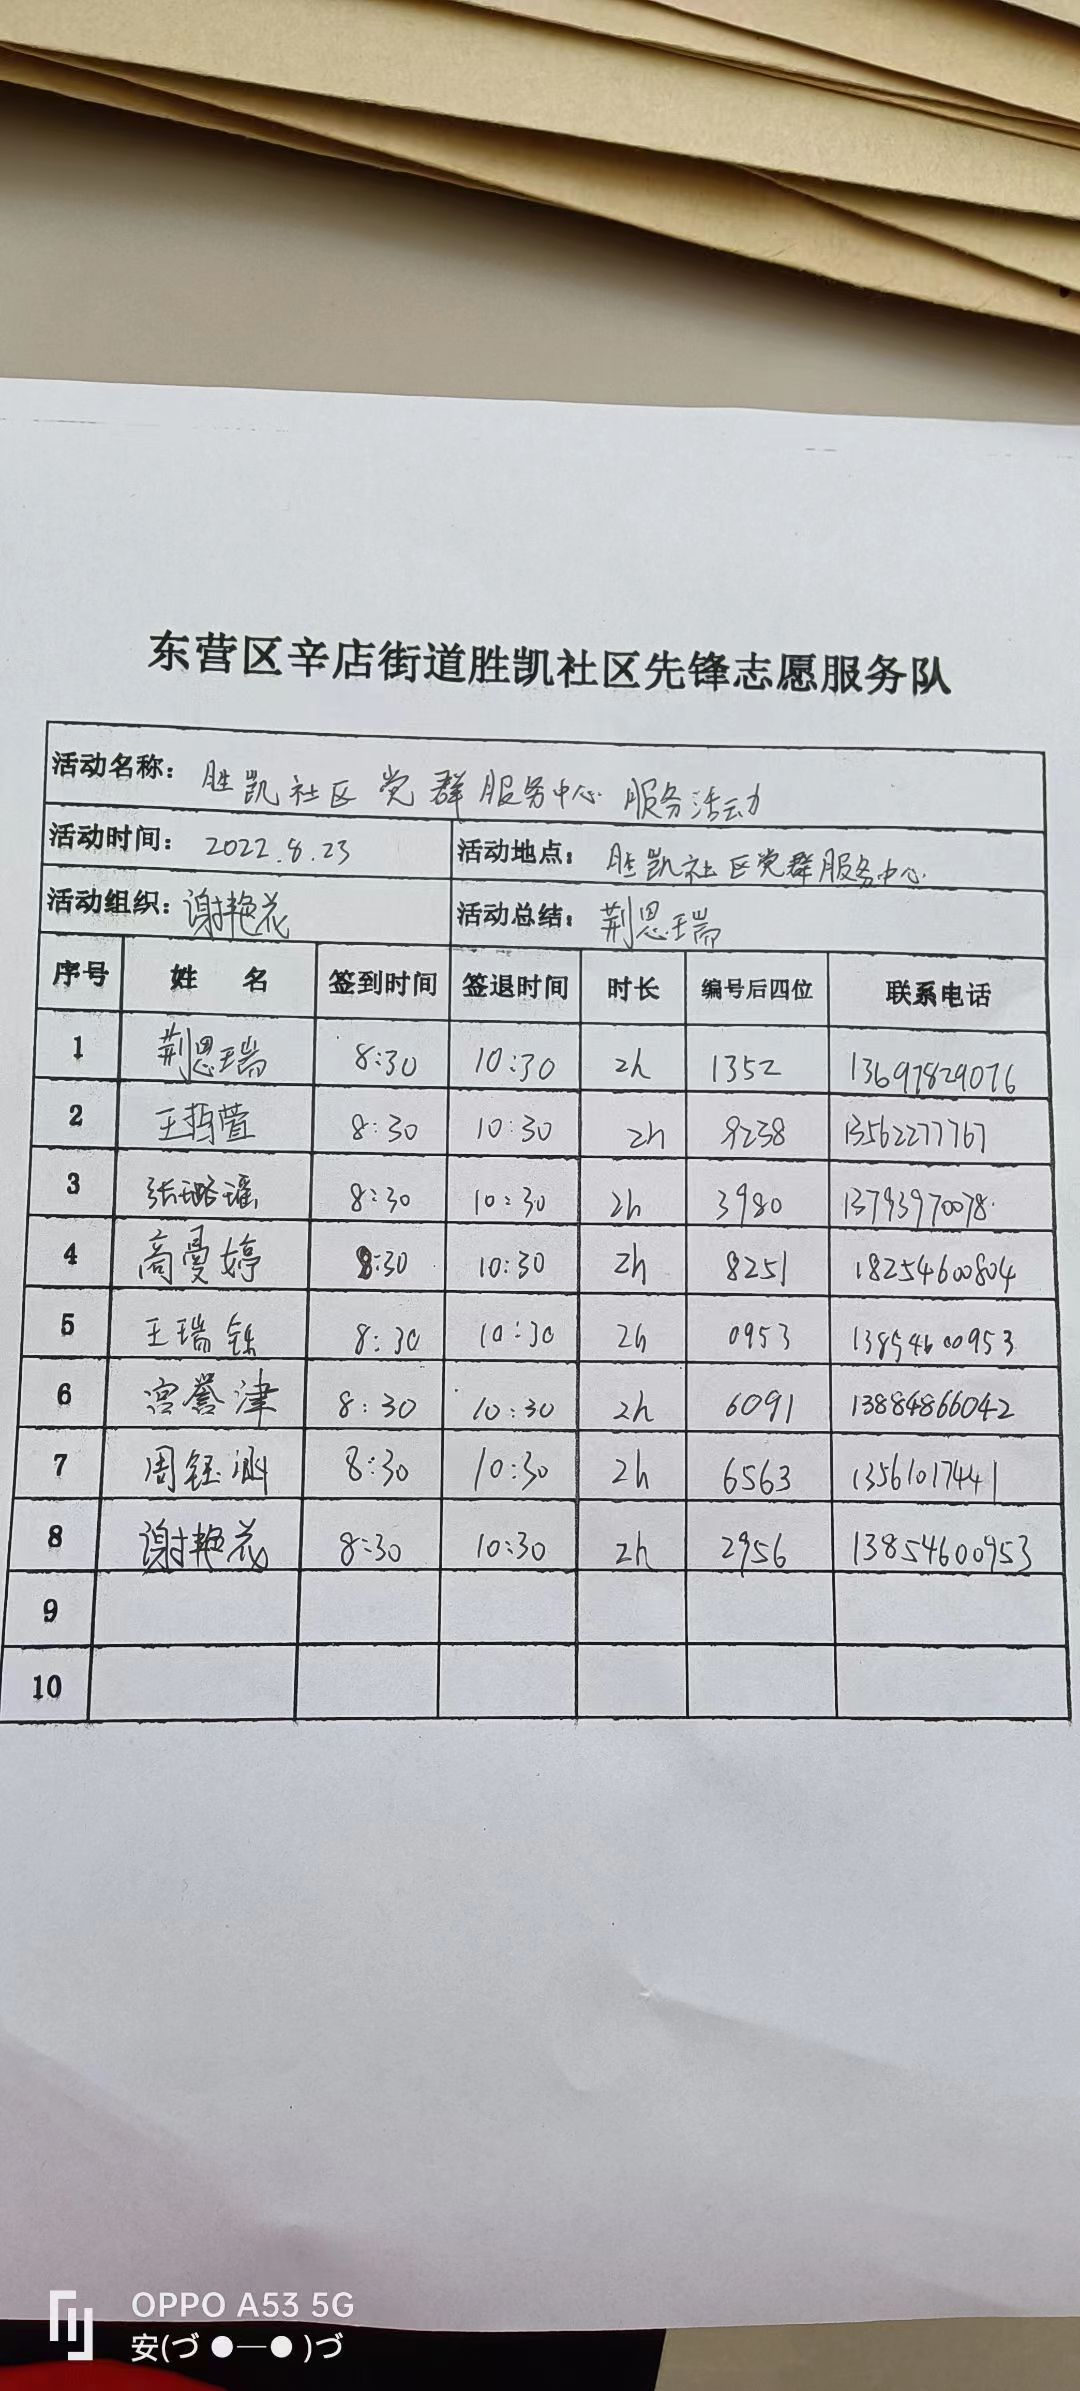 东营区辛店街道胜凯社区先锋志愿服务队
活动名称：胜凯社区党群服务中心服务活动
活动时间：2022.8.23 活动地点：胜凯社区党群服务中心
活动组织：谢艳花 活动总结：荆恩瑞
序号 姓 名 签到时间 签退时间 时长 编号后四位 联系电话
1 荆恩瑞 8:30 10:30 2h 1352 13697829076
2 王哲萱 8:30 10:30 2h 9238 13562277767
3 张璐瑶 8:30 10:30 2h 3980 13793970078
4 高曼婷 8:30 10:30 2h 8251 18254600804
5 王瑞铄 8:30 10:30 2h 0953 13854600953
6 宫誉津 8:30 10:30 2h 6091 13884866042
7 周钰涵 8:30 10:30 2h 6563 13561017441
8 谢艳花 8:30 10:30 2h 2956 13854600953
9
10
OPPO A53 5G
安(づ ●─● )づ